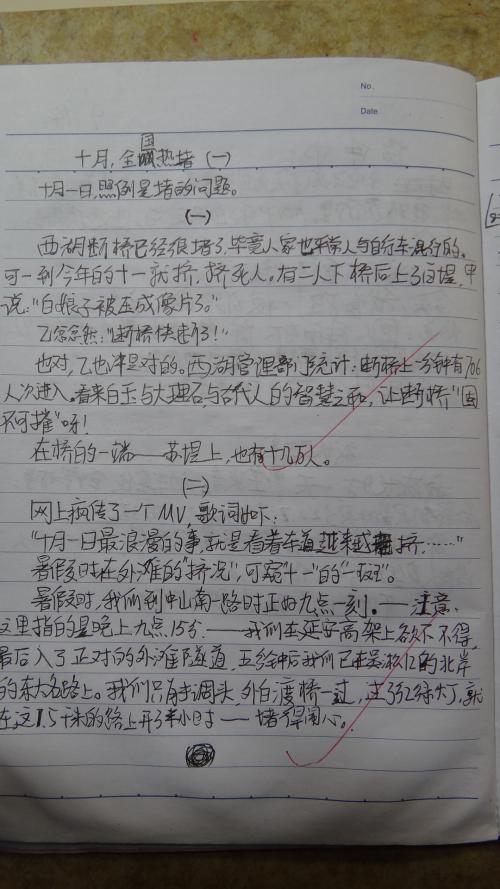 No.
Date
十月,全国热堵(一)
十月一日,照例是堵的问题。
(一)
西湖断桥已经很堵了,毕竟人家也平常人与自行车混行的。
可一到今年的十一就挤,挤死人。有二人下桥后上了白堤,甲
说:"白娘子被压成像片了。"
乙忿忿然:"断桥快断了!"
也对,乙也许是对的。西湖管理部门统计:断桥上一分钟有766
人次进入。看来白玉与大理石,与古代人的智慧之和,让断桥"固
不可摧"呀!
在桥的一端——苏堤上,也有十几万人。
(二)
网上疯传了一个MV,歌词如下:
"十月一日最浪漫的事,就是看着车道越来越挤……"
暑假时在外滩的"挤况",可窥"十一"的"一斑"。
暑假时,我们到中山南一路时正好九点一刻。——注意,
这里指的是晚上九点15分——我们在延安高架上欲下不得,
最后入了正对的外滩隧道,五分钟后我们已在吴淞江的北岸
的东大名路上。我们只有掉调头,外白渡桥一过,主了红绿灯,就
在这1.5千米的路上开了半小时——堵得闹心。